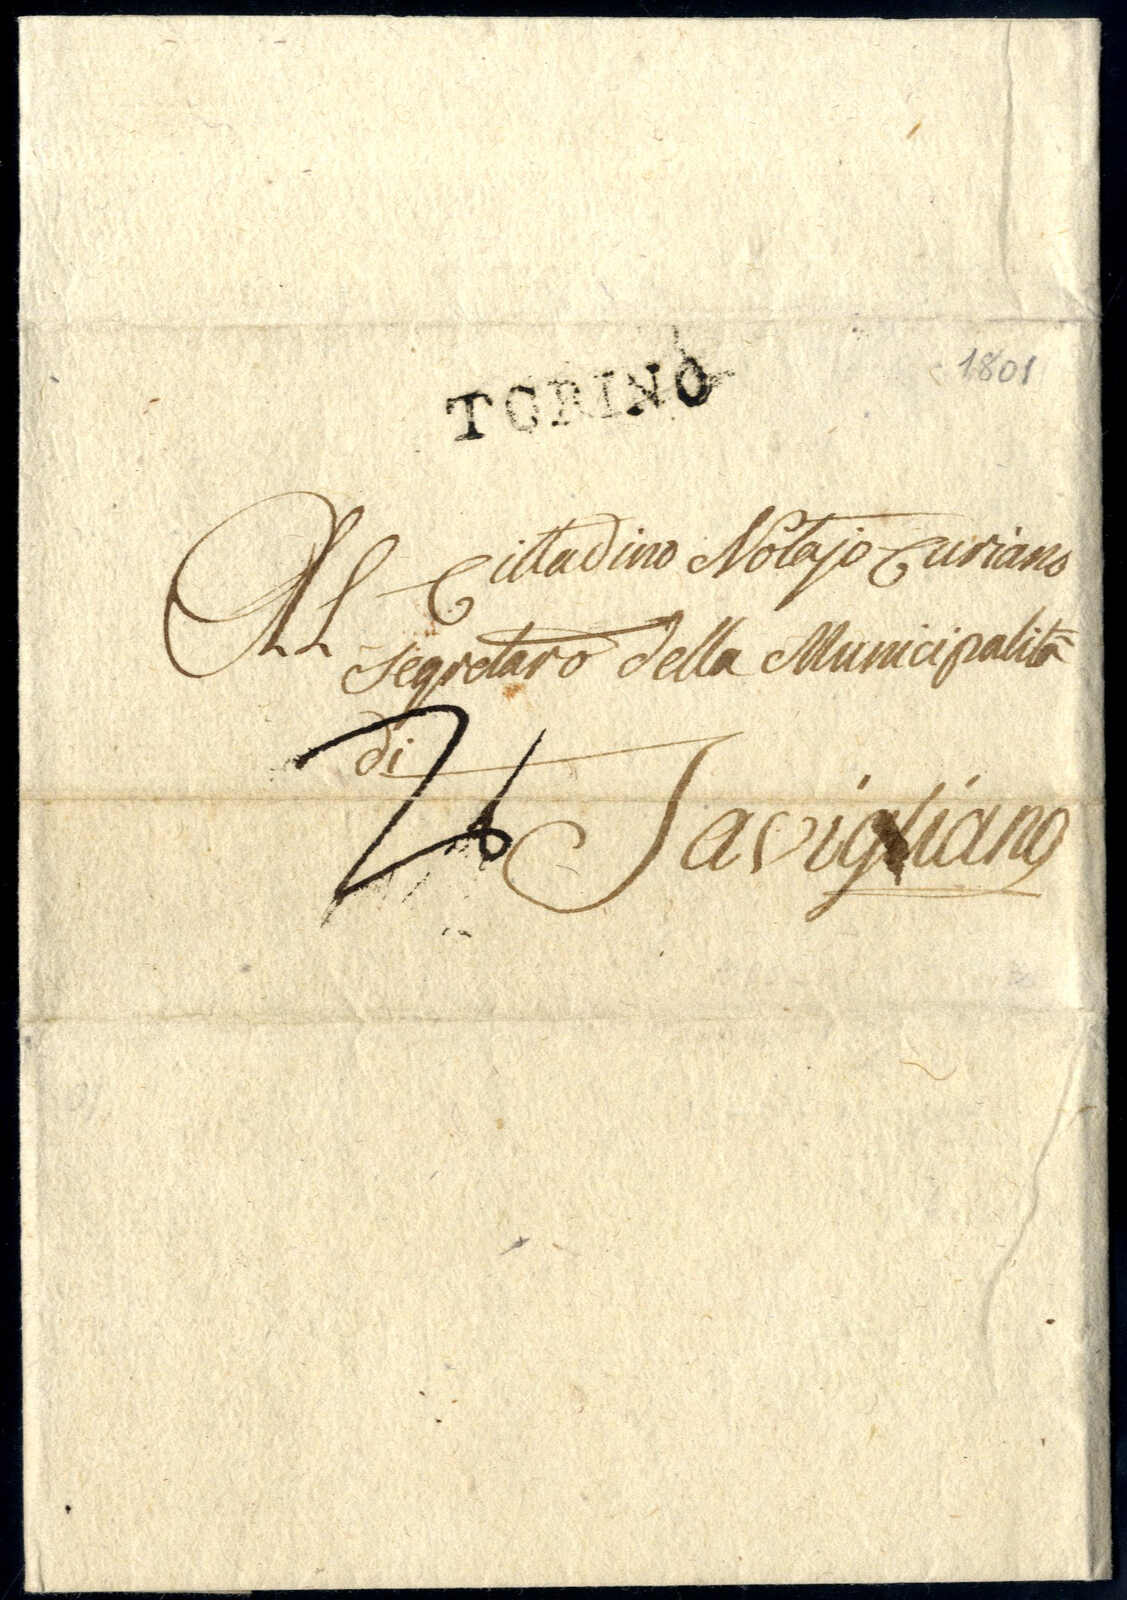 TORINO
1801
Al Cittadino Notajo Curiano
Segretaro della Municipalità
di
Savigliano